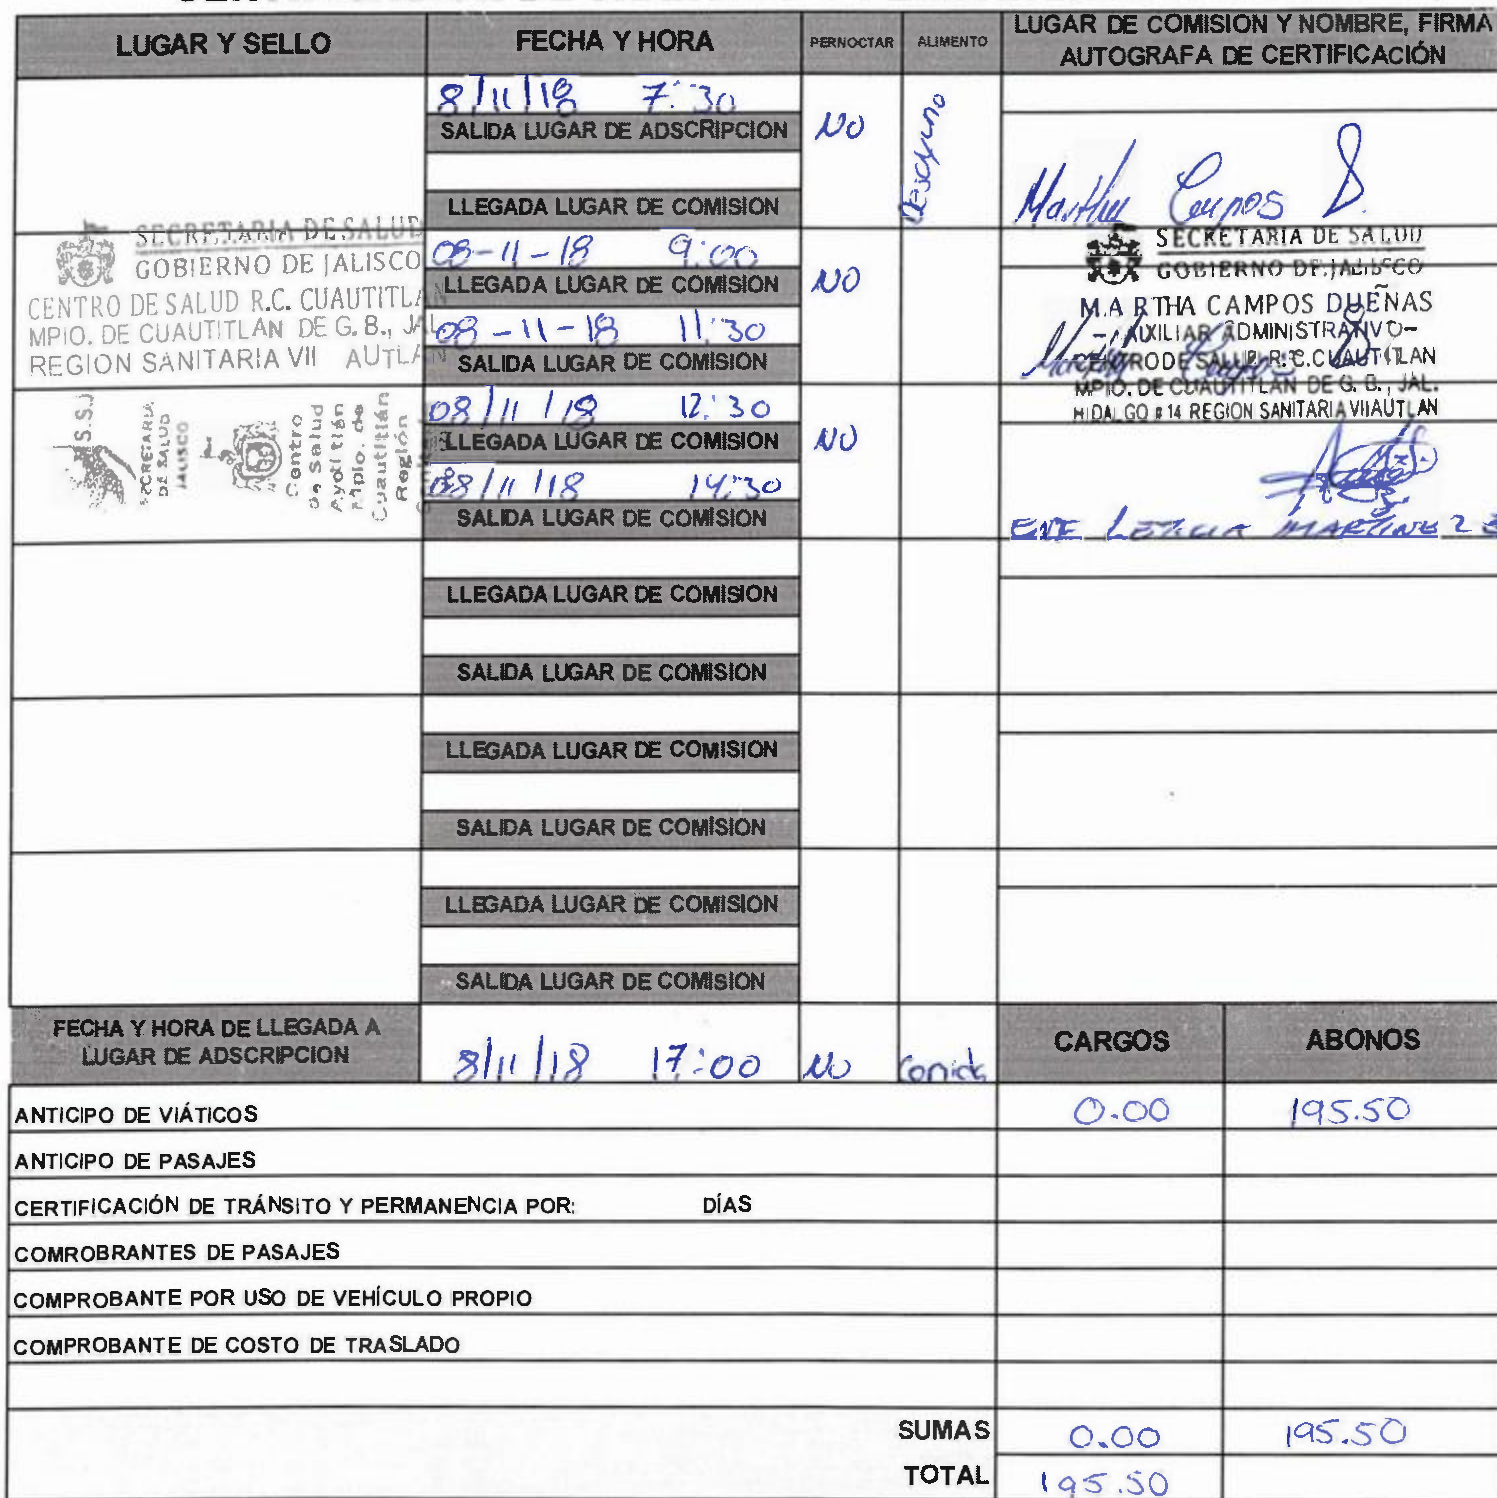 LUGAR Y SELLO
FECHA Y HORA
PERNOCTAR
ALIMENTO
LUGAR DE COMISION Y NOMBRE, FIRMA
AUTOGRAFA DE CERTIFICACIÓN
8/11/18 7:30
SALIDA LUGAR DE ADSCRIPCION
NO
Desayuno
LLEGADA LUGAR DE COMISION
Martha Campos D.
SECRETARIA DE SALUD
GOBIERNO DE JALISCO
CENTRO DE SALUD R.C. CUAUTITLAN
MPIO. DE CUAUTITLAN DE G. B., JAL
REGION SANITARIA VII AUTLAN
08-11-18 9:00
LLEGADA LUGAR DE COMISION
NO
08-11-18 11:30
SALIDA LUGAR DE COMISION
SECRETARIA DE SALUD
GOBIERNO DE JALISCO
MARTHA CAMPOS DUEÑAS
-AUXILIAR ADMINISTRATIVO-
CENTRO DE SALUD R.C. CUAUTITLAN
MPIO. DE CUAUTITLAN DE G. B., JAL.
HIDALGO #14 REGION SANITARIA VII AUTLAN
S.S.J
SECRETARIA
DE SALUD
JALISCO
Centro
de Salud
Ayotitlán
Mpio. de
Cuautitlán
Región
08/11/18 12:30
LLEGADA LUGAR DE COMISION
NO
08/11/18 14:30
SALIDA LUGAR DE COMISION
LETICIA MARTINEZ
LLEGADA LUGAR DE COMISION
SALIDA LUGAR DE COMISION
LLEGADA LUGAR DE COMISION
SALIDA LUGAR DE COMISION
LLEGADA LUGAR DE COMISION
SALIDA LUGAR DE COMISION
FECHA Y HORA DE LLEGADA A
LUGAR DE ADSCRIPCION
8/11/18 17:00
NO
Comida
CARGOS
ABONOS
ANTICIPO DE VIÁTICOS
0.00
195.50
ANTICIPO DE PASAJES
CERTIFICACIÓN DE TRÁNSITO Y PERMANENCIA POR: DÍAS
COMROBRANTES DE PASAJES
COMPROBANTE POR USO DE VEHÍCULO PROPIO
COMPROBANTE DE COSTO DE TRASLADO
SUMAS
0.00
195.50
TOTAL
195.50